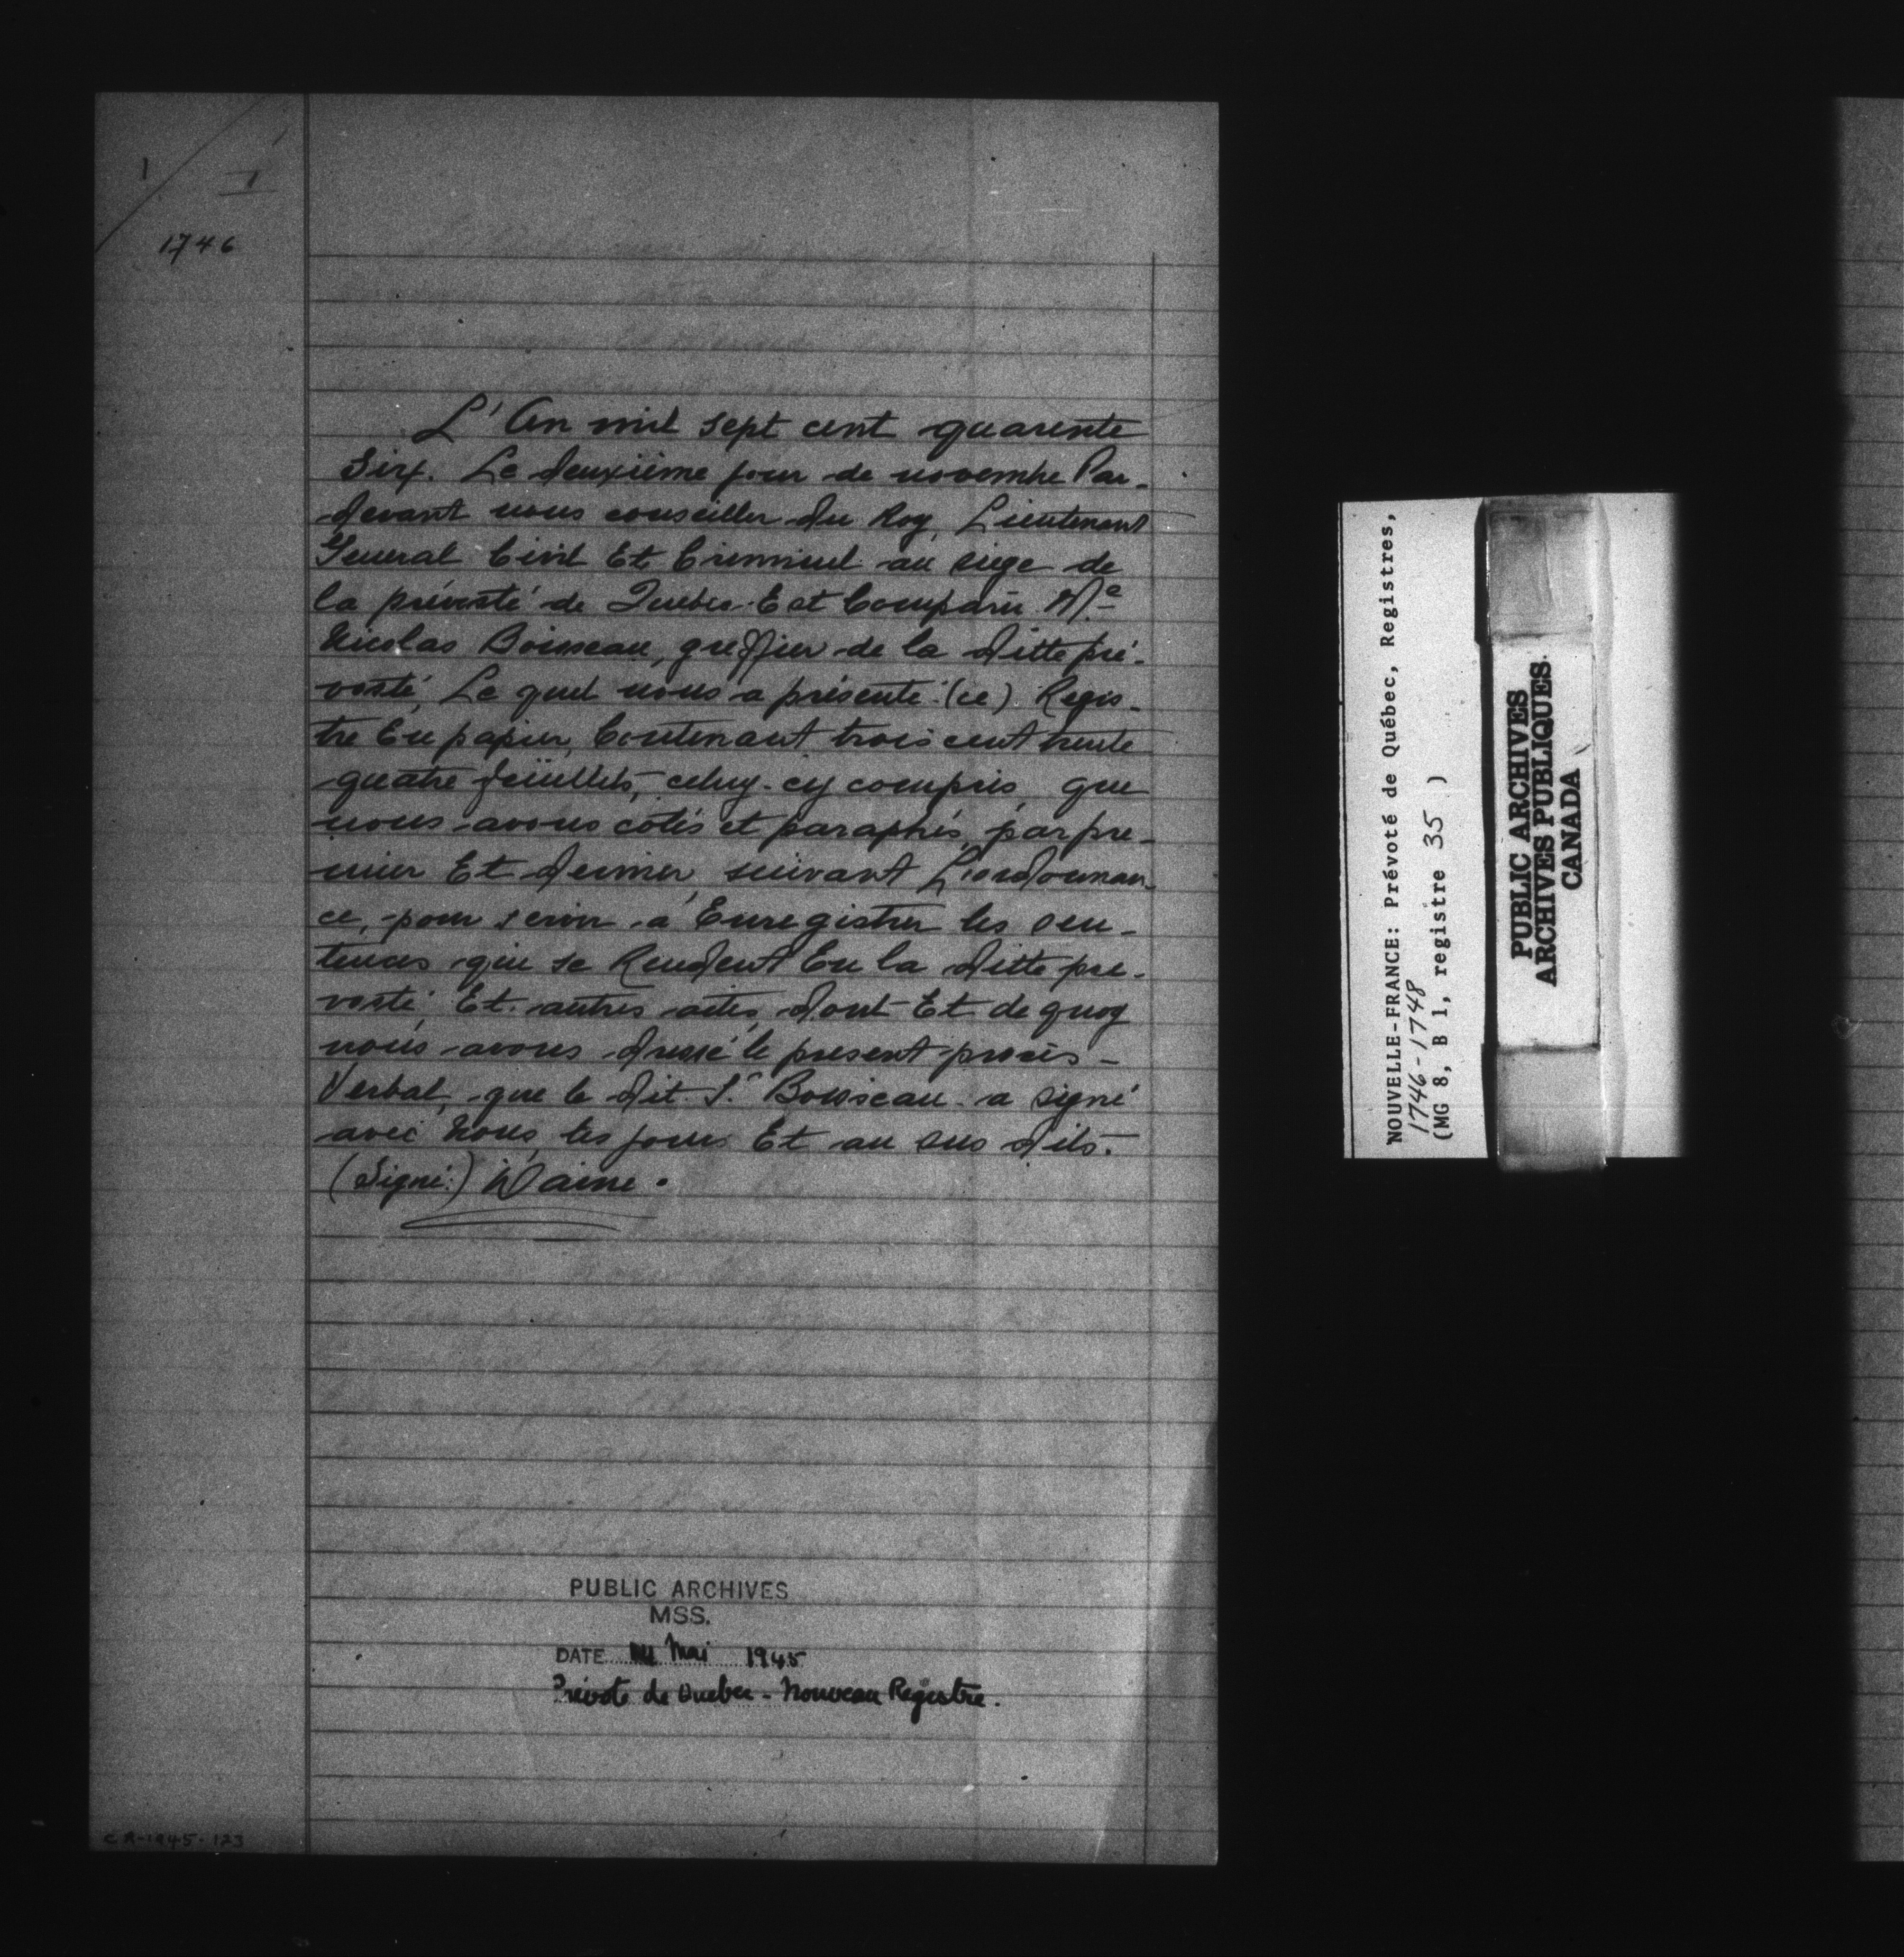 1
1
1746
L'An mil sept cent quarente
Six. Le deuxième jour de novembre Par-
devant nous conseiller du Roy, Lieutenant
General Civil Et Criminel au siege de
la prévosté de Quebec. Est Comparu Me
Nicolas Boisseau, greffier de la ditte pré-
vosté, Le quel nous a présenté (ce) Regis-
tre En papier, Contenant trois cent trente
quatre feüillets, celuy-cy compris, que
nous avons cotés et paraphés, par pre-
mier Et dernier, suivant L'ordonnan-
ce, pour servir à Enregistrer les sen-
tences qui se Rendent En la ditte pre-
vosté Et autres actes, dont Et de quoy
nous avons dressé le present procès-
Verbal, que le dit Sr. Boisseau a signé
avec Nous, les jours Et an sus dits.
(Signé:) Daine.
PUBLIC ARCHIVES
MSS.
DATE Mai 1945
Prévoté de Quebec - Nouveau Registre.
CR-1945-123
NOUVELLE-FRANCE: Prévoté de Québec, Registres,
1746-1748
(MG 8, B 1, registre 35 )
PUBLIC ARCHIVES
ARCHIVES PUBLIQUES
CANADA